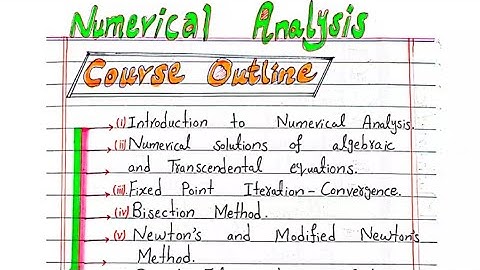 Numerical Analysis
Course Outline
(i) Introduction to Numerical Analysis.
(ii) Numerical solutions of algebraic
and Transcendental equations.
(iii) Fixed Point Iteration - Convergence.
(iv) Bisection Method.
(v) Newton's and Modified Newton's
Method.